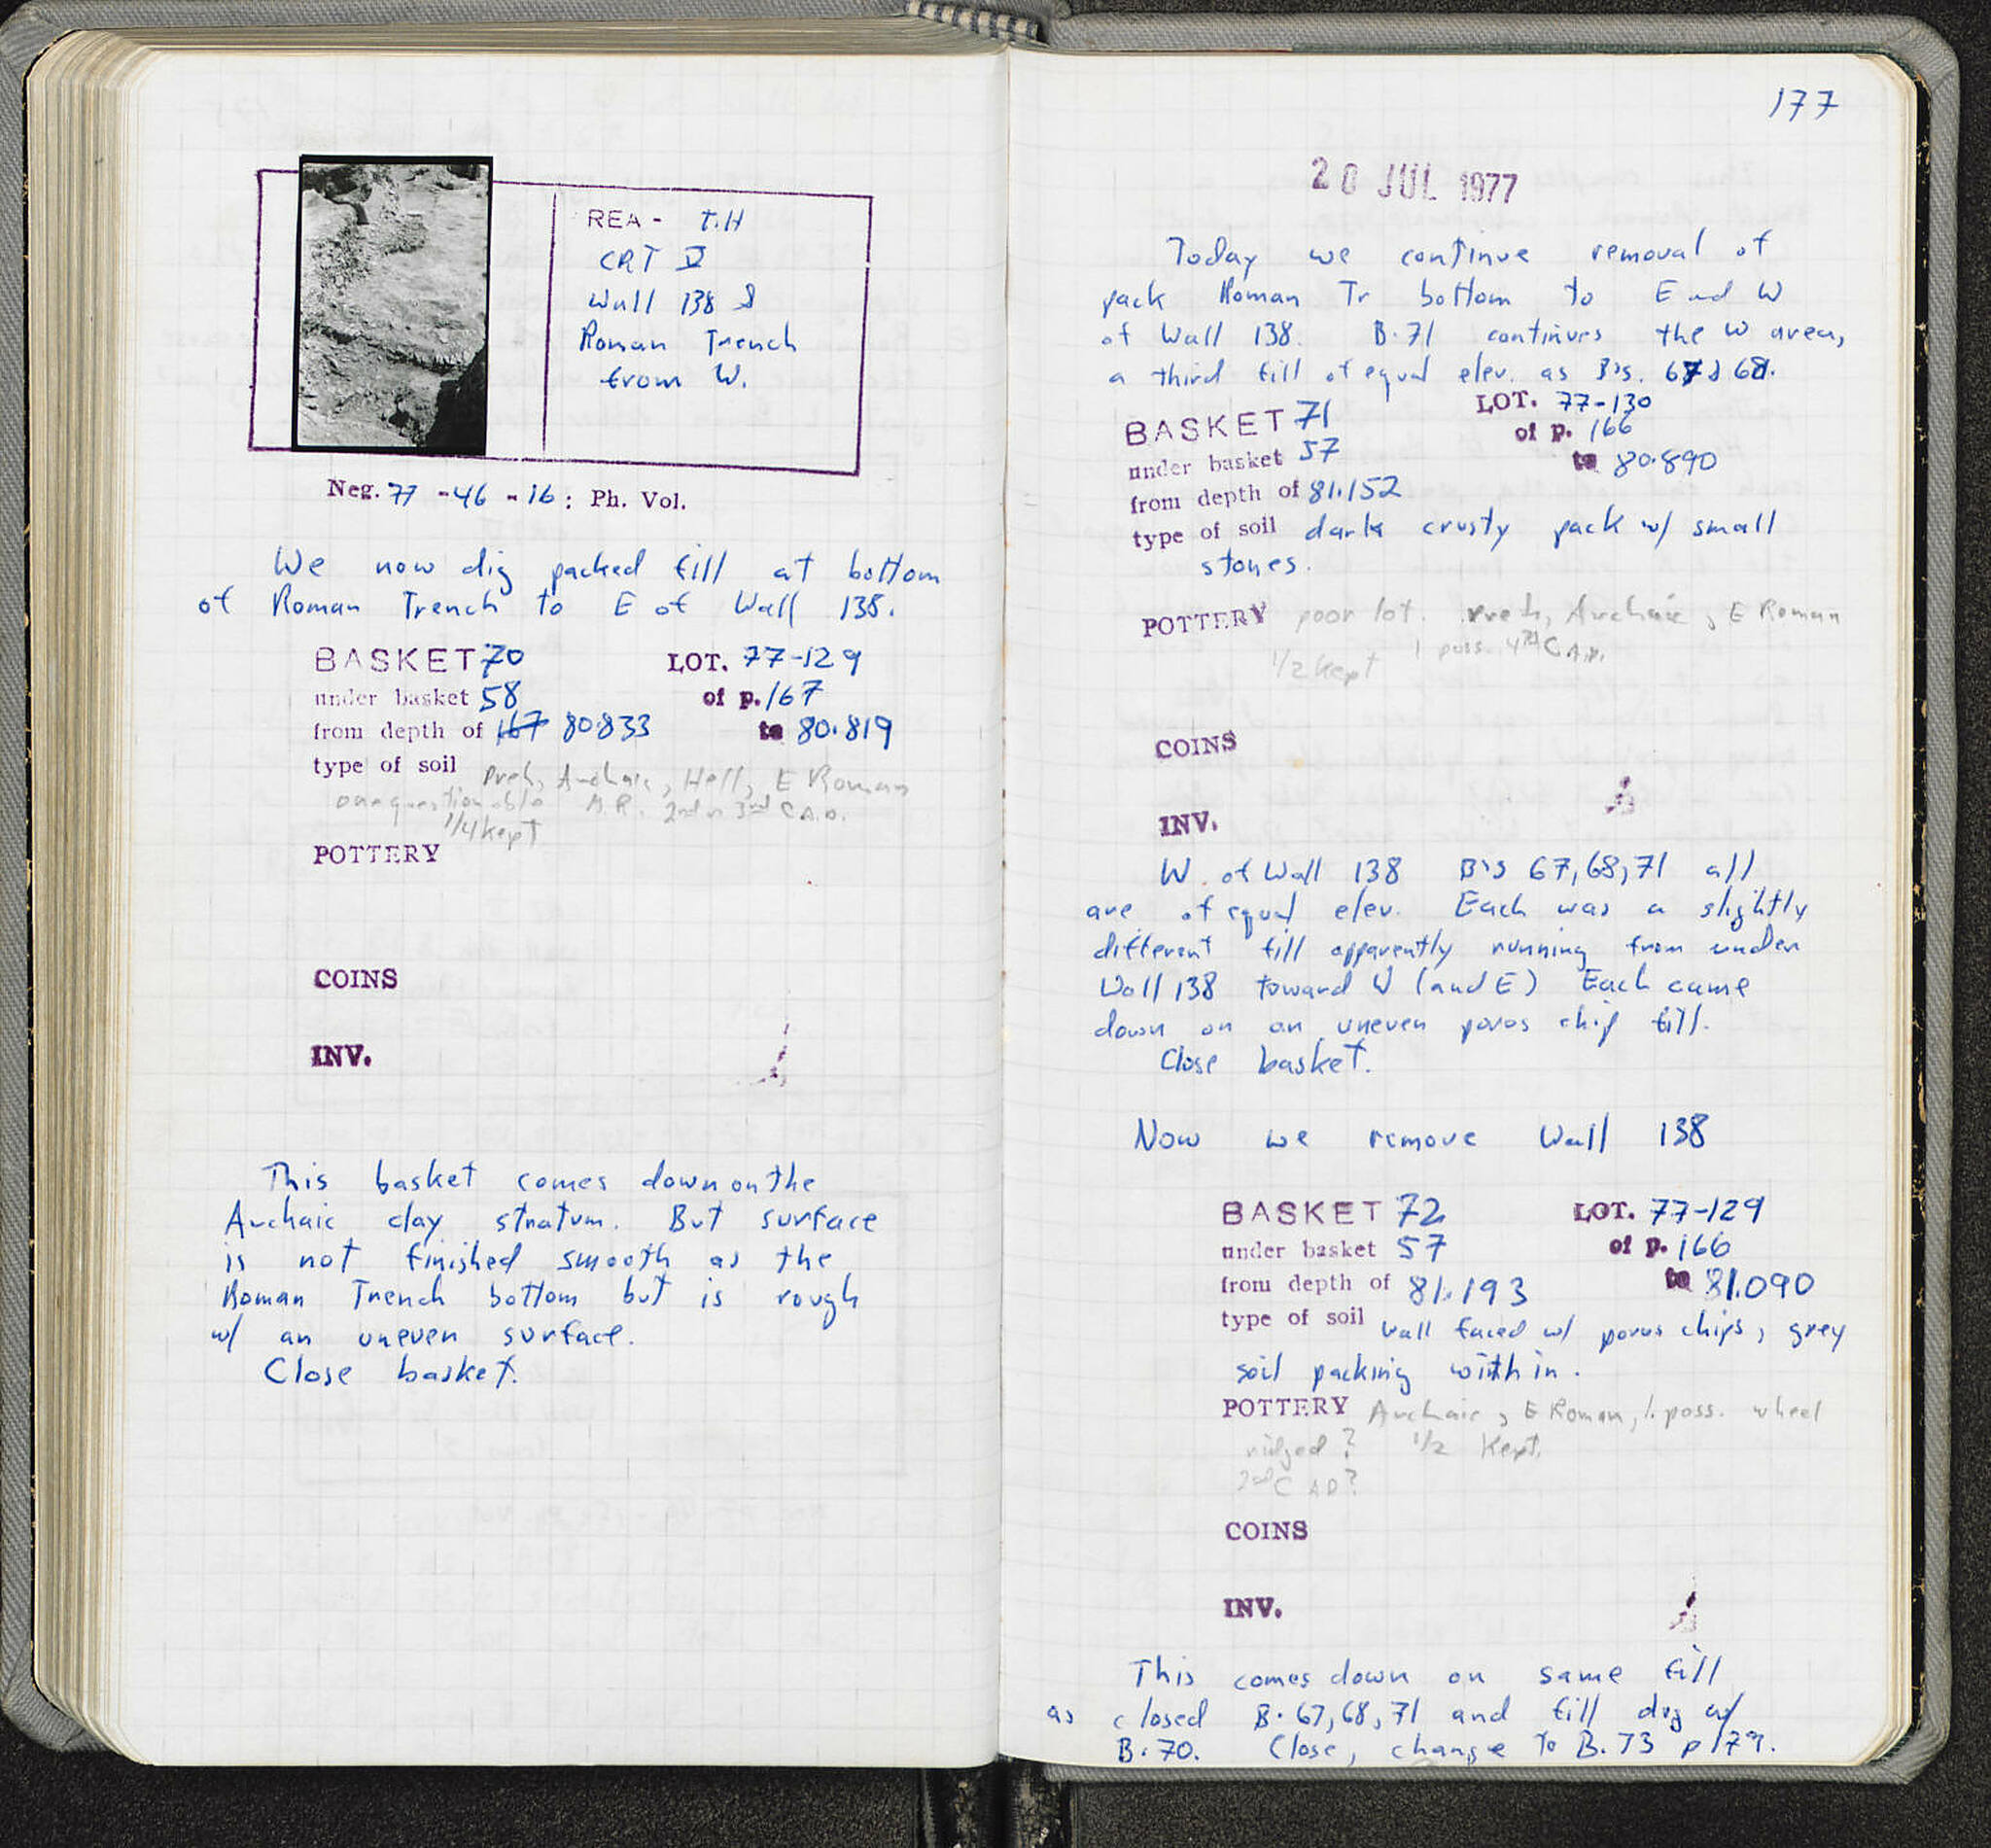 REA - T.H
CRT V
Wall 138 &
Roman Trench
from W.
Neg. 77-46-16: Ph. Vol.
We now dig packed fill at bottom
of Roman Trench to E of Wall 138.
BASKET 70 LOT. 77-129
under basket 58 of p. 167
from depth of 167 80.833 to 80.819
type of soil Preh, Archaic, Hell, E Roman
one questionable M.R. 2nd or 3rd C A.D.
1/4 kept
POTTERY
COINS
INV.
This basket comes down on the
Archaic clay stratum. But surface
is not finished smooth as the
Roman Trench bottom but is rough
w/ an uneven surface.
Close basket.
177
20 JUL 1977
Today we continue removal of
pack Roman Tr bottom to E and W
of Wall 138. B.71 continues the W area,
a third fill of equal elev. as B's. 67 & 68.
BASKET 71 LOT. 77-130
under basket 57 of p. 166
from depth of 81.152 to 80.890
type of soil dark crusty pack w/ small
stones.
POTTERY poor lot. Preh, Archaic, E Roman
1/2 kept 1 poss. 4th C A.D.
COINS
INV.
W. of Wall 138 B's 67, 68, 71 all
are of equal elev. Each was a slightly
different fill apparently running from under
Wall 138 toward W (and E) Each came
down on an uneven poros chip fill.
Close basket.
Now we remove Wall 138
BASKET 72 LOT. 77-129
under basket 57 of p. 166
from depth of 81.193 to 81.090
type of soil Wall faced w/ poros chips, grey
soil packing within.
POTTERY Archaic, E Roman, 1 poss. wheel
ridged? 1/2 Kept.
2nd C AD?
COINS
INV.
This comes down on same fill
as closed B. 67, 68, 71 and fill dug w/
B. 70. Close, change to B. 73 p 179.